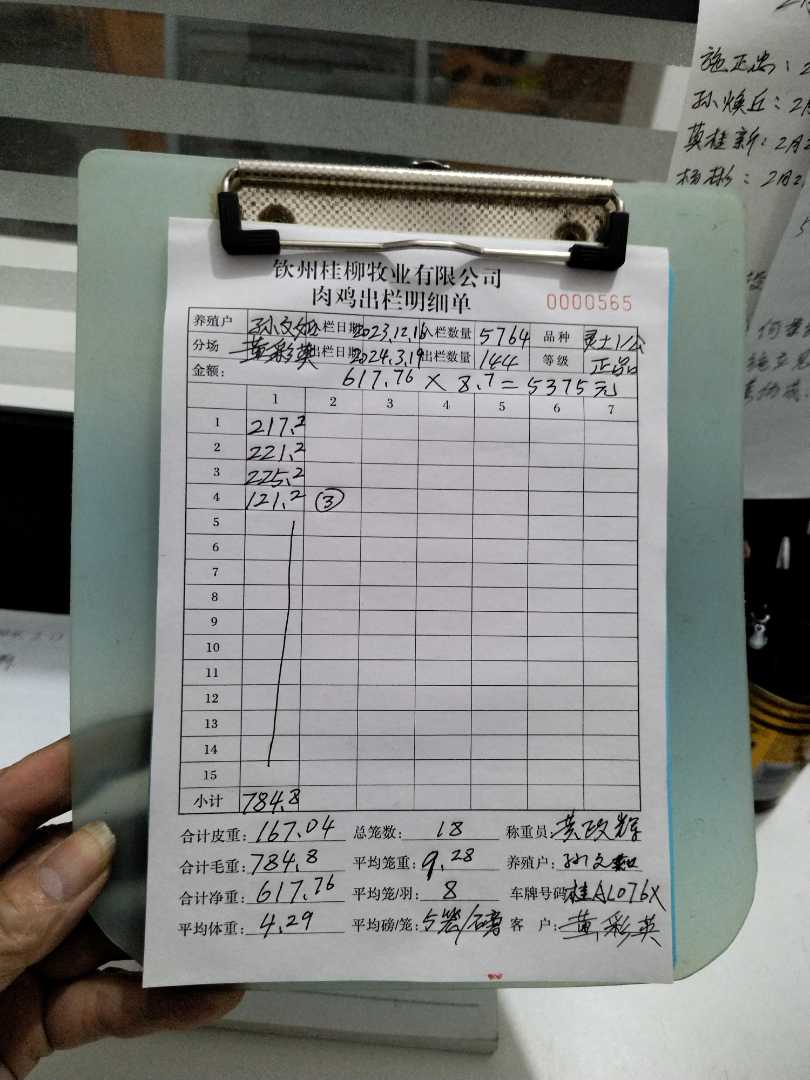 施正忠：2
孙焕丘：2月
莫桂新：2月2
杨彬：2月2
钦州桂柳牧业有限公司
肉鸡出栏明细单
0000565
养殖户 孙文 入栏日期 2023.12.16 入栏数量 5764 品种
分场 黄彩英 出栏日期 2024.3.19 出栏数量 144 等级 正品
金额： 617.76 × 8.7 = 5375元
1 2 3 4 5 6 7
1 217.2
2 221.2
3 225.2
4 121.2 ③
5
6
7
8
9
10
11
12
13
14
15
小计 784.8
合计皮重：167.04 总笼数：18 称重员：黄政辉
合计毛重：784.8 平均笼重：9.28 养殖户：孙文
合计净重：617.76 平均笼/羽：8 车牌号码 桂AL076X
平均体重：4.29 平均磅/笼：5笼/磅 客 户：黄彩英